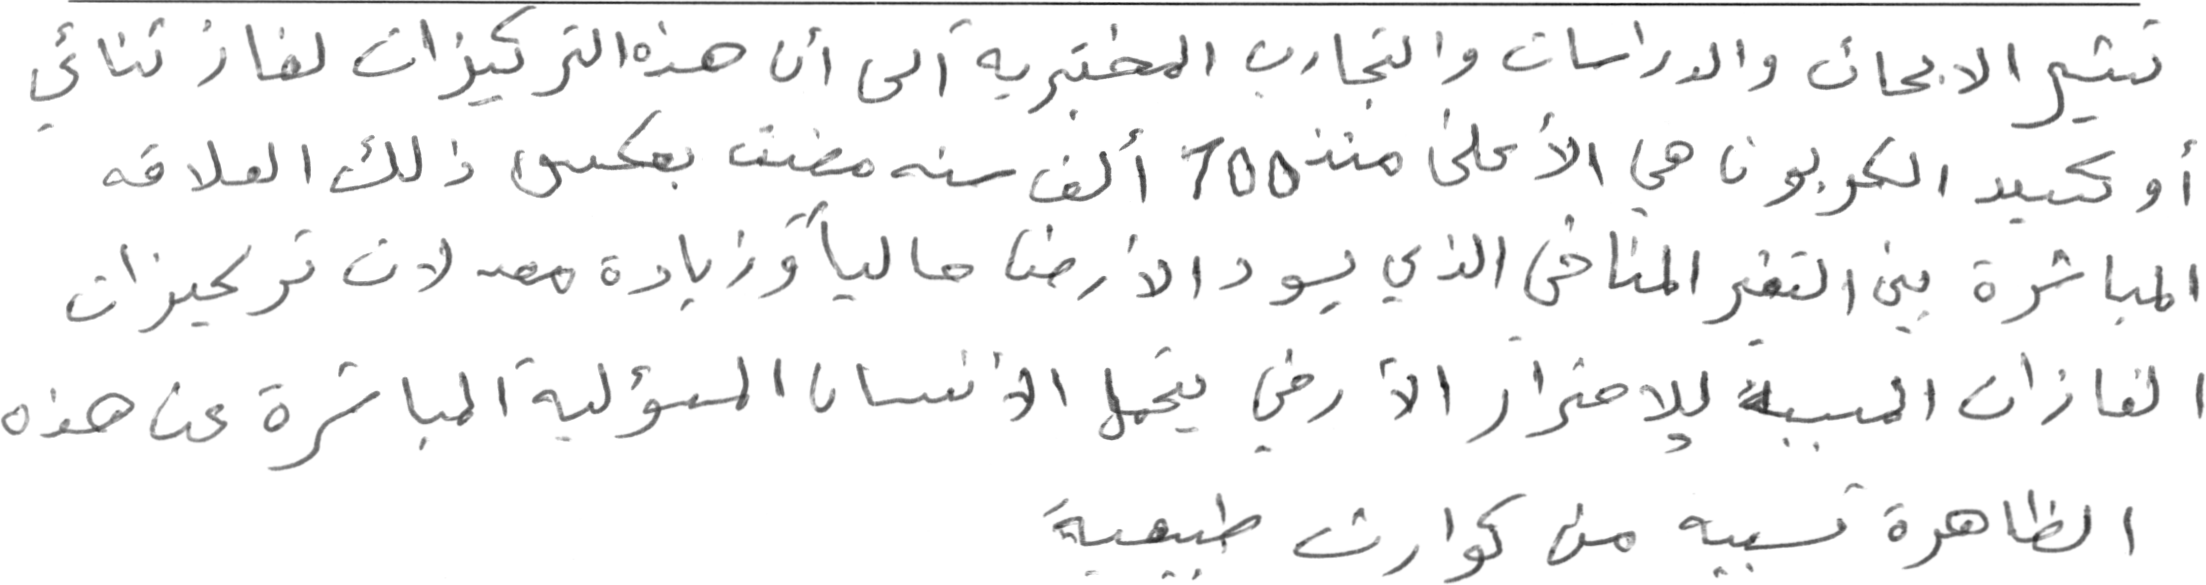 تشير الابحاث والدراسات والتجارب المختبرية الى أن هذه التركيزات لغاز ثنائي
أوكسيد الكربون هي الأعلى منذ 700 ألف سنه مضت بعكس ذلك العلاقه
المباشرة بين التغير المناخي الذي يسود الأرض حالياً وزيادة معدلات تركيزات
الغازات المسببة للاحترار الأرضي يتحمل الأنسان المسؤلية المباشرة عن هذه
الظاهرة تسببيه من كوارث طبيعية